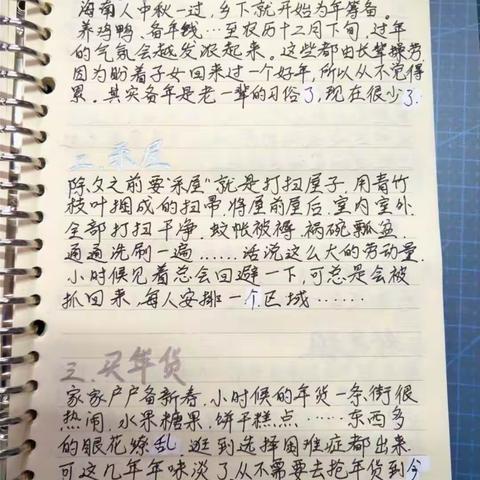 海南人中秋一过,乡下就开始为年筹备。
养鸡鸭、备年线…至农历十二月下旬,过年
的气氛会越发浓起来。这些都由长辈操劳
因为盼着子女回来过一个好年,所以从不觉得
累。其实备年是老一辈的习俗了,现在很少了.
二.采屋
除夕之前要“采屋”就是打扫屋子.用青竹
枝叶捆成的扫帚.将屋前屋后.室内室外.
全部打扫干净.蚊帐被褥.祸碗瓢盆
通通洗刷一遍……话说这么大的劳动量.
小时候见着总会回避一下,可总是会被
抓回来,每人安排一个区域……
三.买年货
家家户户备新春.小时候的年货一条街很
热闹.水果糖果.饼干糕点……东西多
的眼花缭乱 逛到选择困难症都出来.
可这几年年味淡了.从不需要去抢年货到今